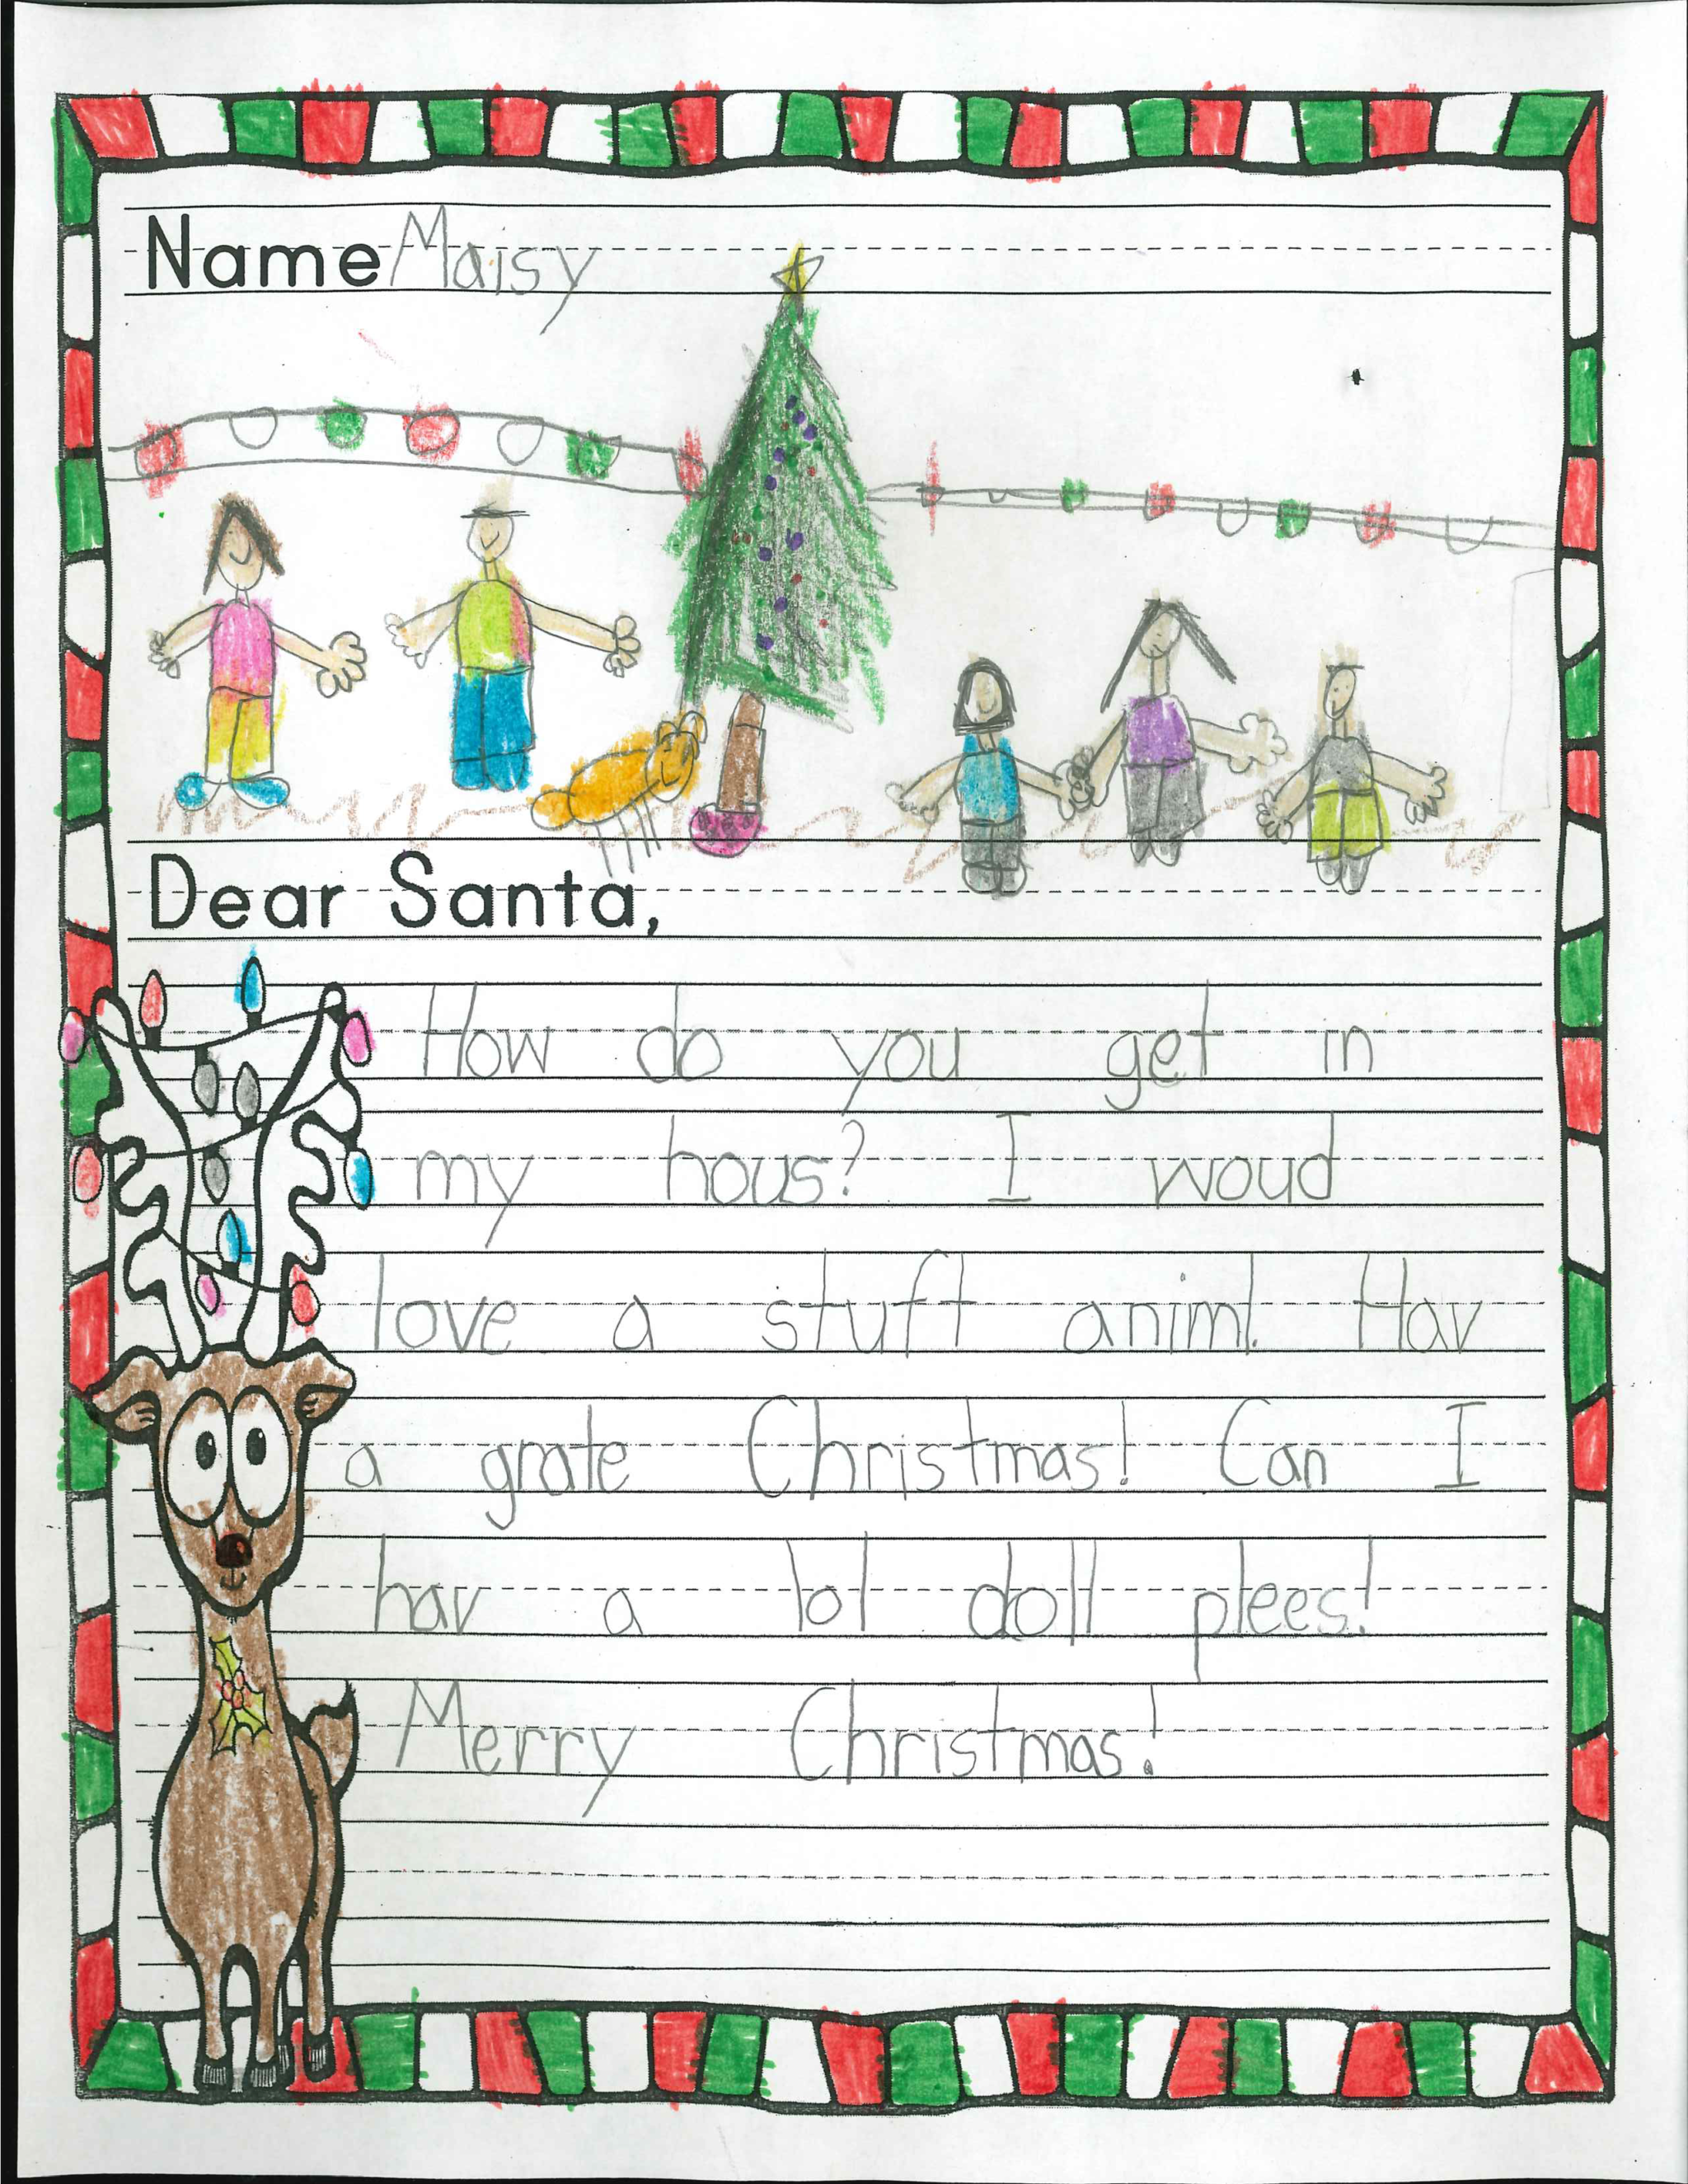 Name Maisy
Dear Santa,
How do you get in
my hous? I woud
love a stuft animl. Hav
a grate Christmas! Can I
hav a lol doll plees!
Merry Christmas!